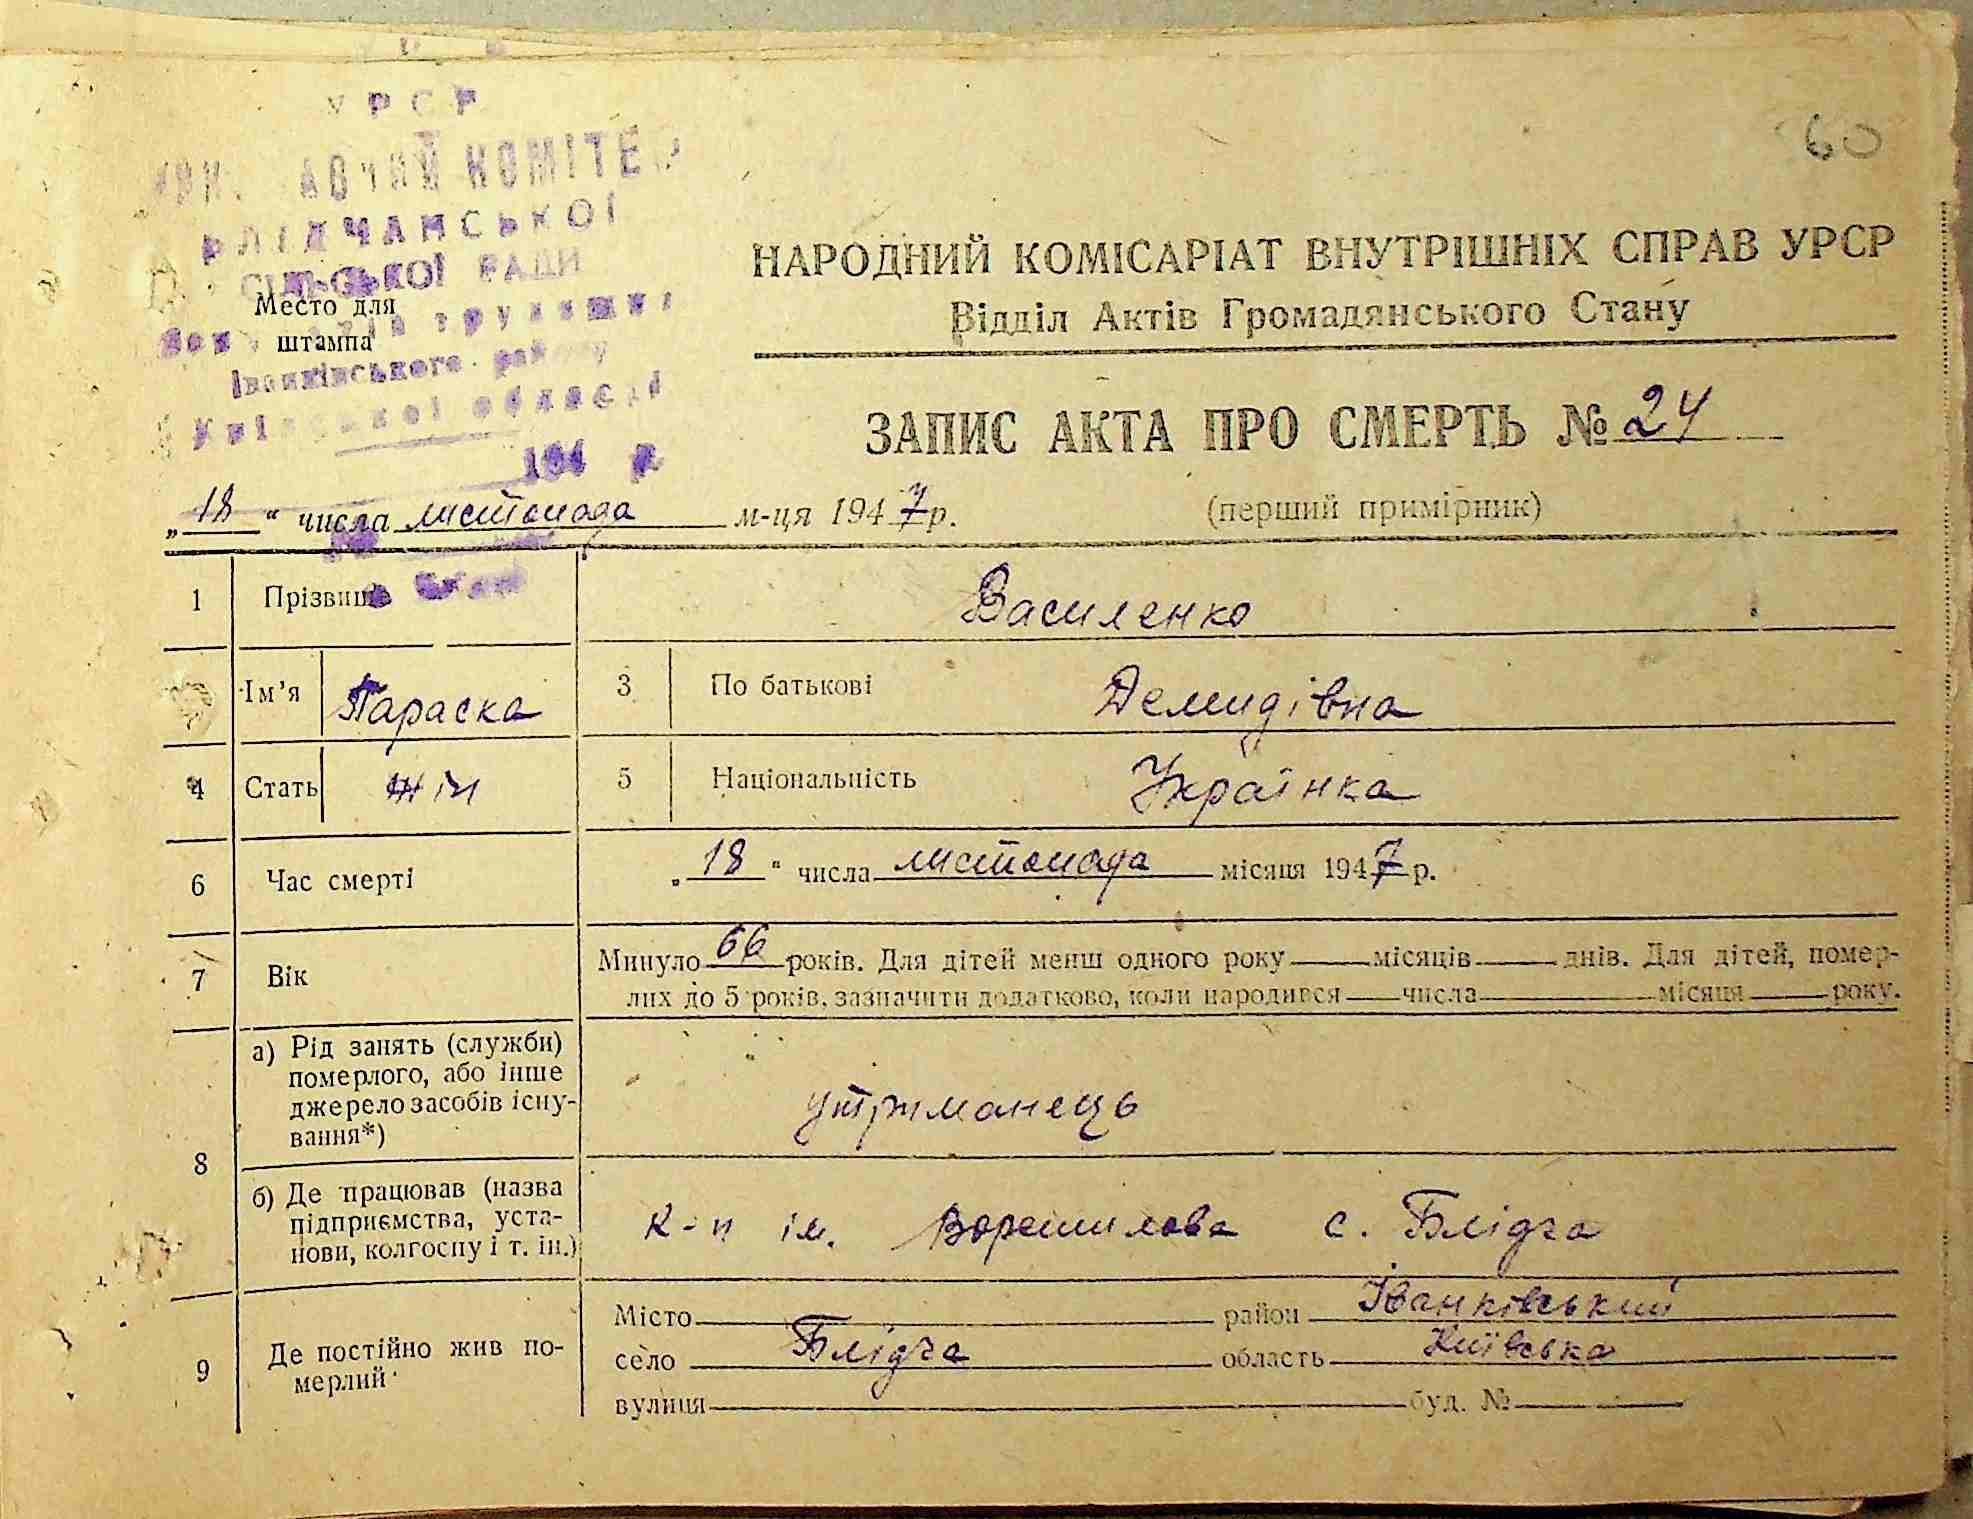 УРСР
КОМІТЕ
БЛІДЧАНСЬКОЇ
СІЛЬСЬКОЇ РАДИ
Место для
штампа
Іванківського району
Київської області
194 р.
60
НАРОДНИЙ КОМІСАРІАТ ВНУТРІШНІХ СПРАВ УРСР
Відділ Актів Громадянського Стану
ЗАПИС АКТА ПРО СМЕРТЬ № 24
„18“ числа листопада м-ця 1947 р. (перший примірник)
1 Прізвище Василенко
Ім’я Параска 3 По батькові Демидівна
4 Стать жін 5 Національність Українка
6 Час смерті „18“ числа листопада місяця 1947 р.
7 Вік Минуло 66 років. Для дітей менш одного року місяців днів. Для дітей, помер-
лих до 5 років, зазначити додатково, коли народився числа місяця року.
8 а) Рід занять (служби)
померлого, або інше
джерело засобів існу-
вання*)
утрманець
б) Де працював (назва
підприємства, уста-
нови, колгоспу і т. ін.)
к-п ім. Ворошилова с. Блідча
9 Де постійно жив по-
мерлий
Місто район Іванківський
село Блідча область Київська
вулиця буд. №